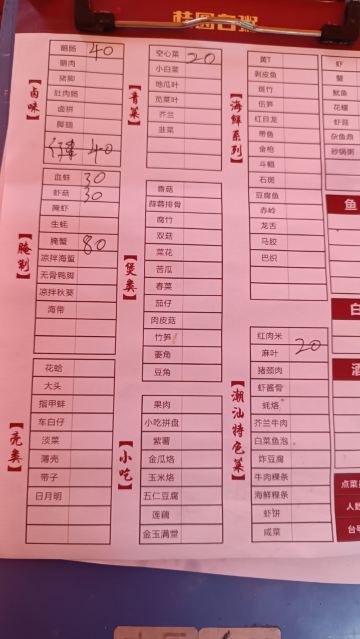 桂园白粥
【卤味】
鹅肠 40
鹅肉
猪脚
肚肉肠
卤拼
脚翅
40
【腌制】
血蚌 30
虾菇 30
腌虾
生蚝
腌蟹 80
凉拌海蜇
无骨鸭脚
凉拌秋葵
海带
【壳类】
花蛤
大头
指甲蚌
车白仔
淡菜
薄壳
带子
日月明
【青菜】
空心菜 20
小白菜
地瓜叶
苋菜叶
芥兰
韭菜
【煲类】
香菇
蒜蓉排骨
腐竹
双菇
菜花
苦瓜
春菜
茄仔
肉皮菇
竹笋
菱角
豆角
【小吃】
果肉
小吃拼盘
紫薯
金瓜烙
玉米烙
五仁豆腐
莲藕
金玉满堂
【海鲜系列】
黄T
剥皮鱼
斑竹
伍笋
红目龙
带鱼
金枪
斗鲳
石斑
豆腐鱼
赤岭
龙舌
马胶
巴织
【潮汕特色菜】
红肉米
麻叶 20
猪颈肉
虾酱骨
蚝烙
芥兰牛肉
白菜鱼泡
炸豆腐
牛肉粿条
海鲜粿条
虾饼
咸菜
虾
蟹
鱿鱼
花螺
虾菇
杂鱼煲
砂锅粥
鱼
白
酒
点菜
人数
台号